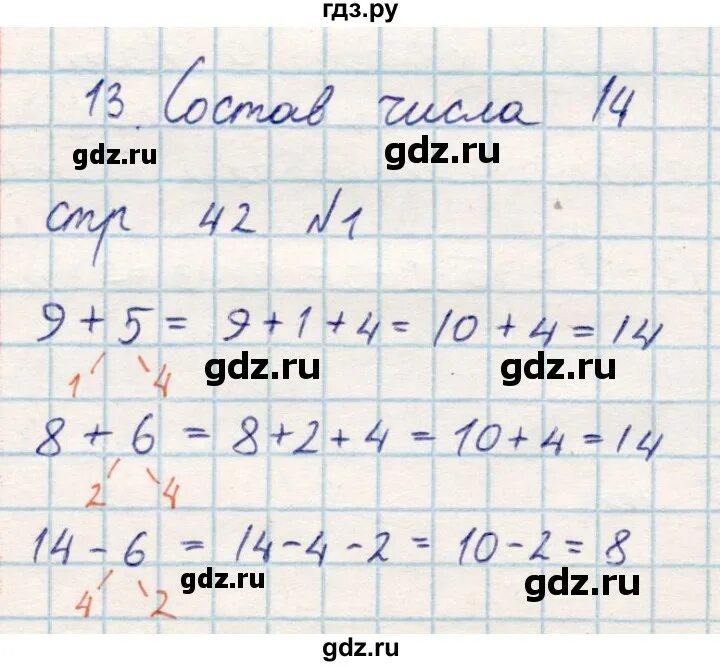 гдз.ру
13. Состав числа 14
gdz.ru gdz.ru
стр 42 №1
9 + 5 = 9 + 1 + 4 = 10 + 4 = 14
1 4 gdz.ru gdz.ru
8 + 6 = 8 + 2 + 4 = 10 + 4 = 14
2 4
14 - 6 = 14 - 4 - 2 = 10 - 2 = 8
4 2 gdz.ru gdz.ru
gdz.ru